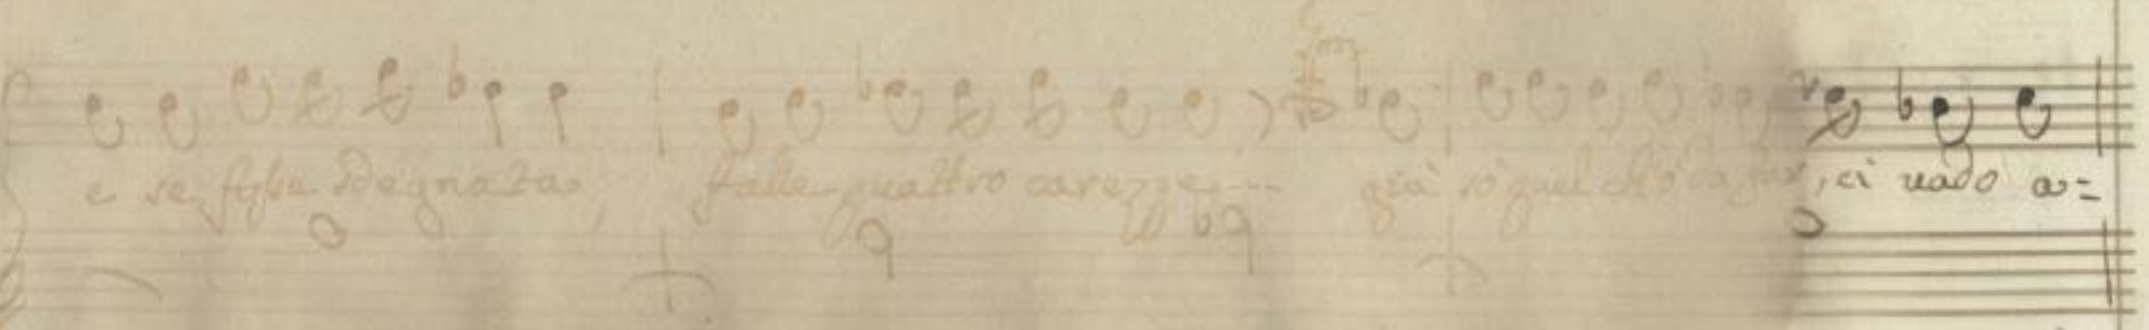 e se fosse sdegnata, falle quattro carezze---- già sò quel ch'ò da far, ci vado a=